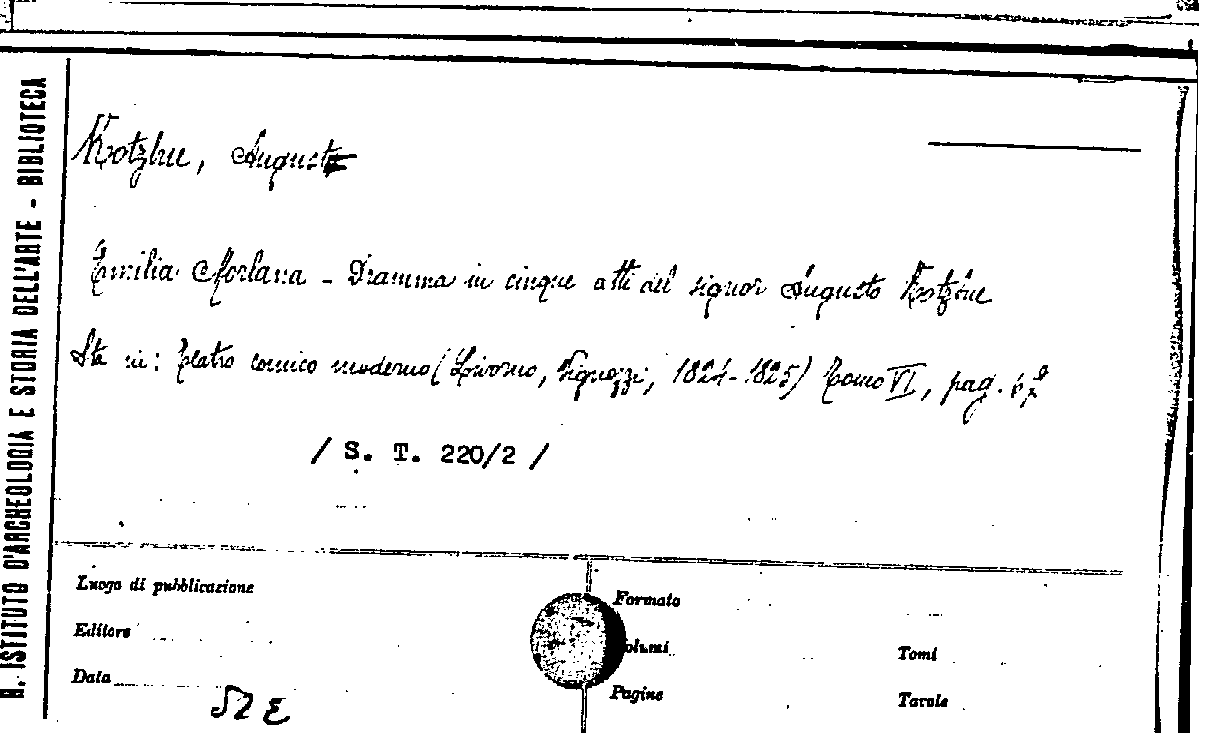 R. ISTITUTO D'ARCHEOLOGIA E STORIA DELL'ARTE - BIBLIOTECA
Kotzbue, Augusto
Emilia Morlana - Dramma in cinque atti del signor Augusto Kotzbue
Sta in: Teatro comico moderno (Livorno, Vignozzi, 1824-1825) Tomo VI, pag.
/ S. T. 220/2 /
Luogo di pubblicazione
Formato
Editore
Volumi
Tomi
Data
Pagine
Tavole